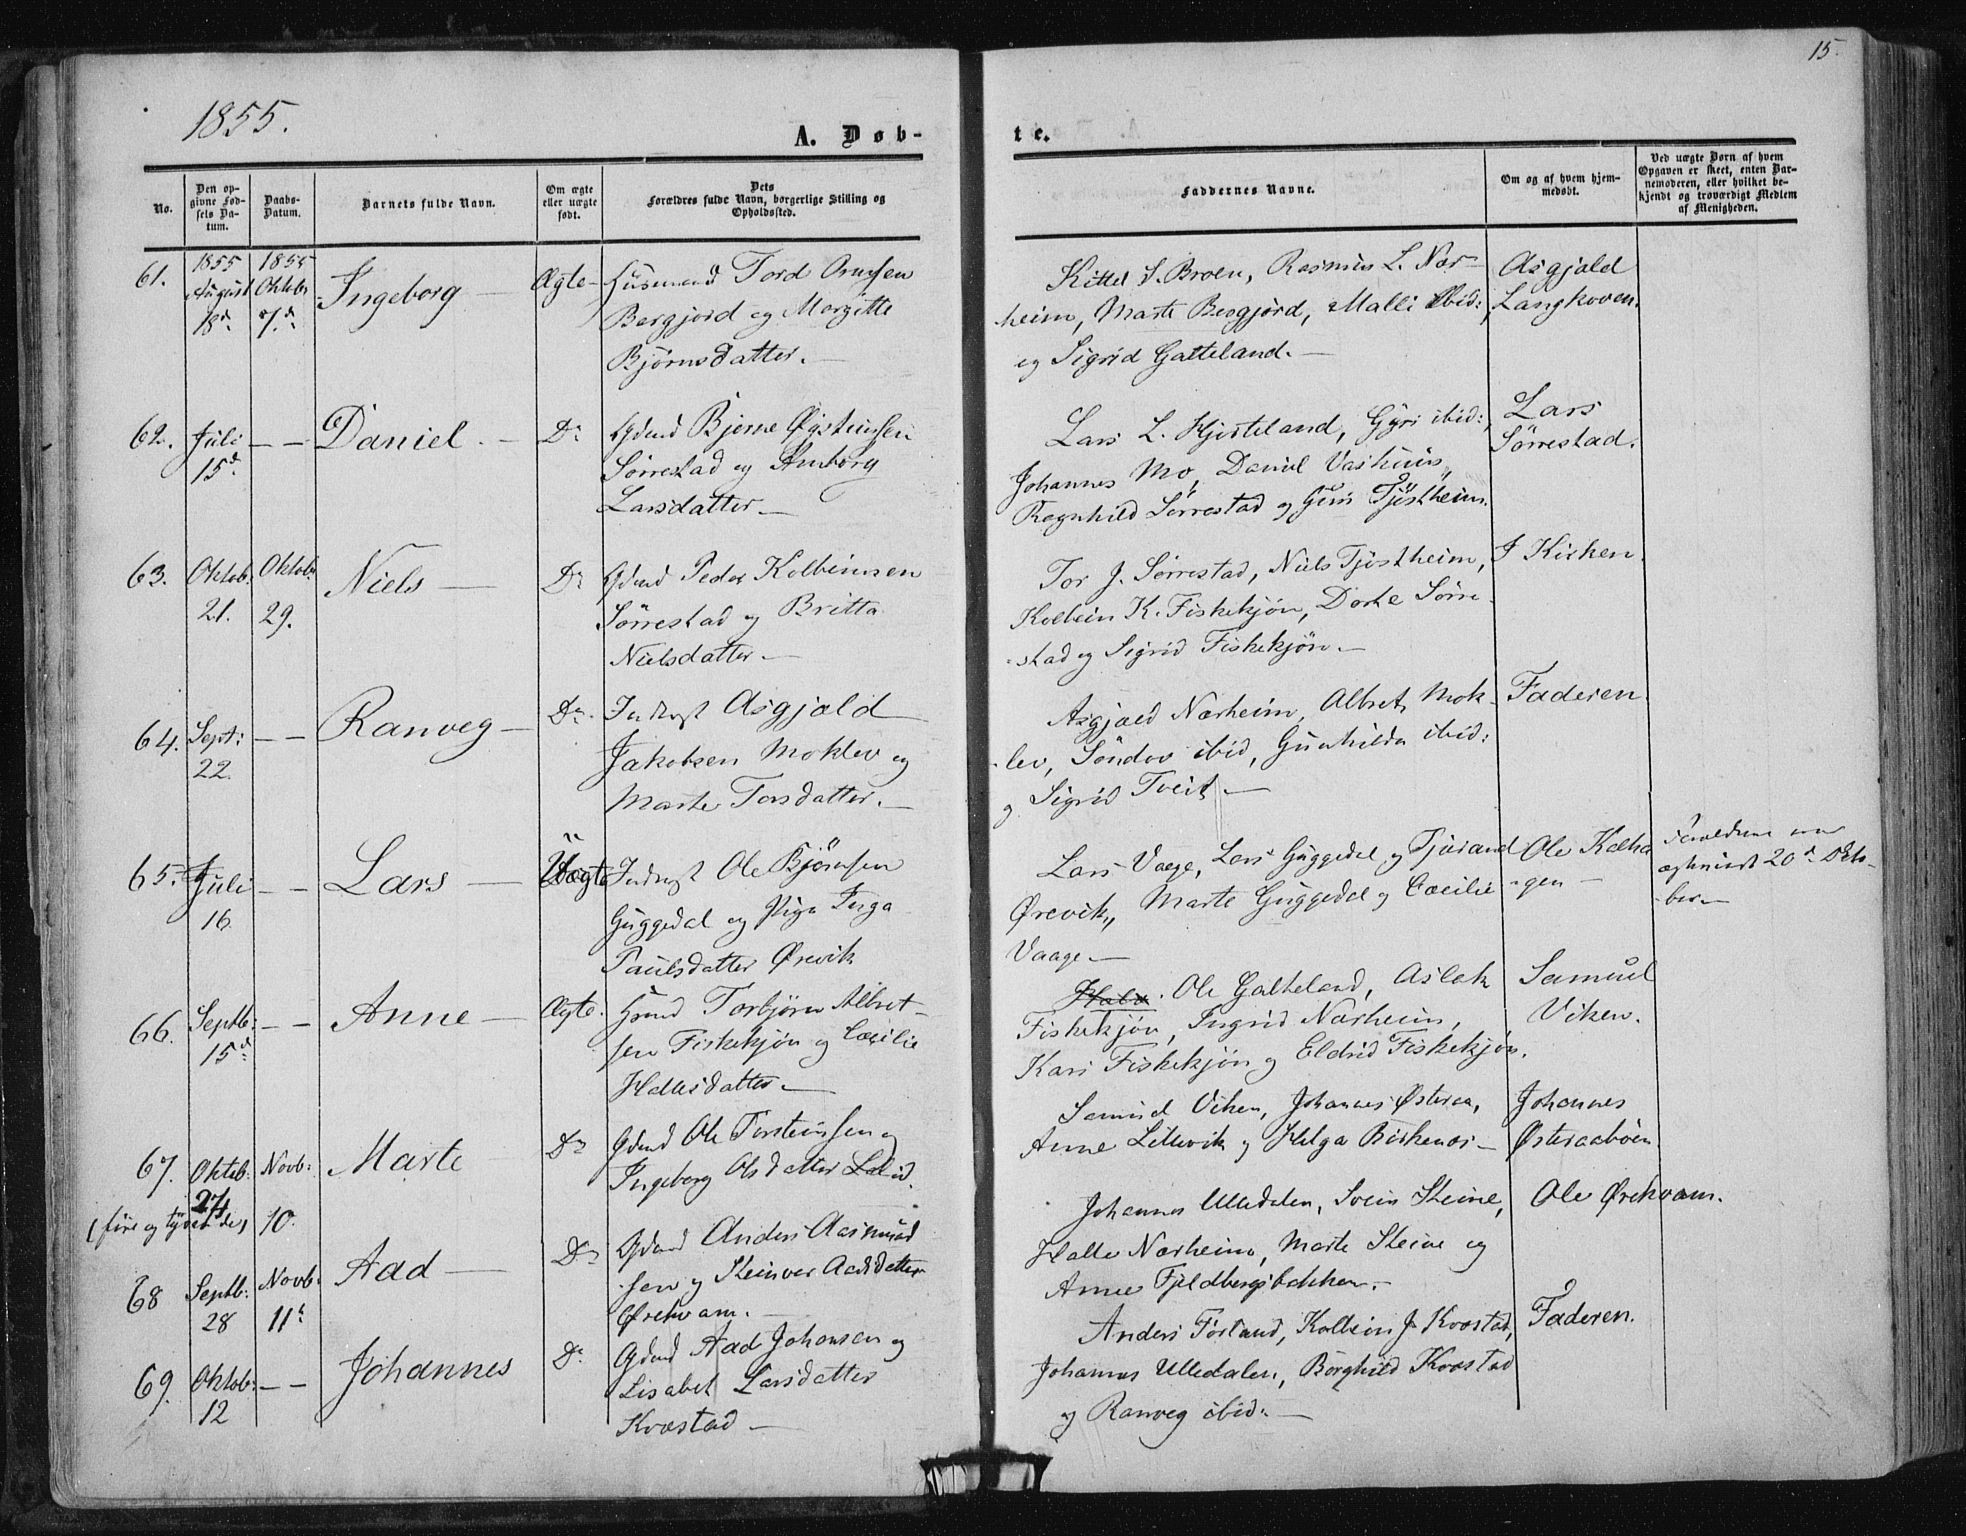 15.
1855.
A. Døb-
te.
No.
Den op-
givne Fød-
sels Da-
tum.
Daabs-
Datum.
Barnets fulde Navn.
Om ægte
eller uægte
født.
Dets
Forældres fulde Navn, borgerlige Stilling og
Opholdssted.
Faddernes Navne.
Om og af hvem hjem-
medøbt.
Ved uægte Børn af hvem
Opgaven er skeet, enten Bar-
nemoderen, eller hvilket be-
kjendt og troværdigt Medlem
af Menigheden.
61.
1855
August
18d
1855
Oktobr
7d
Ingeborg
Ægte
Husmand Tord
Bergjord og Margitte
Bjørnsdatter.
Kittel S. Broen, Rasmus L. Nor-
heim, Marte Bergjord, Malli ibid:
og Sigrid Galteland.
Asgjald
Langhoven.
62.
Juli
15d
— —
Daniel
Do
Gdmd Bjerne Øistensen
Sörrestad og Amborg
Larsdatter.
Lars L. Hjorteland, Gyri ibid:,
Johannes Mo, Daniel
Ragnhild Sörrestad og Tjöstheim.
Lars
Sörrestad.
63.
Oktob.
21.
Oktob:
29.
Niels
Do
Gdmd Peder Kolbeinsen
Sörrestad og Britta
Nielsdatter.
Tor J. Sörrestad, Niels Tjöstheim,
Kolbein K. Fiskekjön, Dorte Sörre-
stad og Sigrid Fiskekjön.
I Kirken.
64.
Sept:
22.
— —
Ranveg
Do
Inderst Asgjald
Jakobsen Moklev og
Marte Torsdatter.
Asgjald Nærheim, Albret Mok-
lev, Söndov ibid, Gunhilda ibid:
og Sigrid Tveit.
Faderen.
65.
Juli
16
— —
Lars
Uægte
Inderst Ole Bjørnsen
Guggedal og Pige Inga
Paulsdatter Ørevik
Lars Vaage, Lars Guggedal og Tjöraand
Ørevik, Marte Guggedal og Cæcilie
Vaage.
Ole Kalha-
gen
Forældrene
20d Okto-
ber.
66.
Septb:
15d
— —
Anne
Ægte.
Gmd Torbjörn Albret-
sen Fiskekjön og Cæcilie
Hallesdatter.
Ole Galteland, Aslak
Fiskekjön, Ingrid Nærheim,
Kari Fiskekjön og Eldrid Fiskekjön.
Samuel
Viken.
67.
Oktob.
24
(fire og tyvende)
Novb:
10.
Marte
Do
Gdmd Ole Torsteinsen og
Ingeborg Olsdatter
Samuel Viken, Johannes Østeraa,
Anne Lillevik og Helga Birkenes
Johannes
Østeraabøen
68
Septb:
28
Novb:
11
Aad
Do
Gdmd Anders Aasmund
sen og Steinver Aadsdatter
Ørekvam.
Johannes Ulledalen, Svein Steine,
Halle Nærheim, Marte Steine og
Anne Fjeldbergsbakken.
Ole Ørekvam.
69.
Oktob:
12
— —
Johannes
Do
Gdmd Aad Johansen og
Lisabet Larsdatter
Kvæstad
Anders Förland, Kolbein J. Kvæstad,
Johannes Ulledalen, Borghild Kvæstad
og Ranveg ibid:
Faderen.